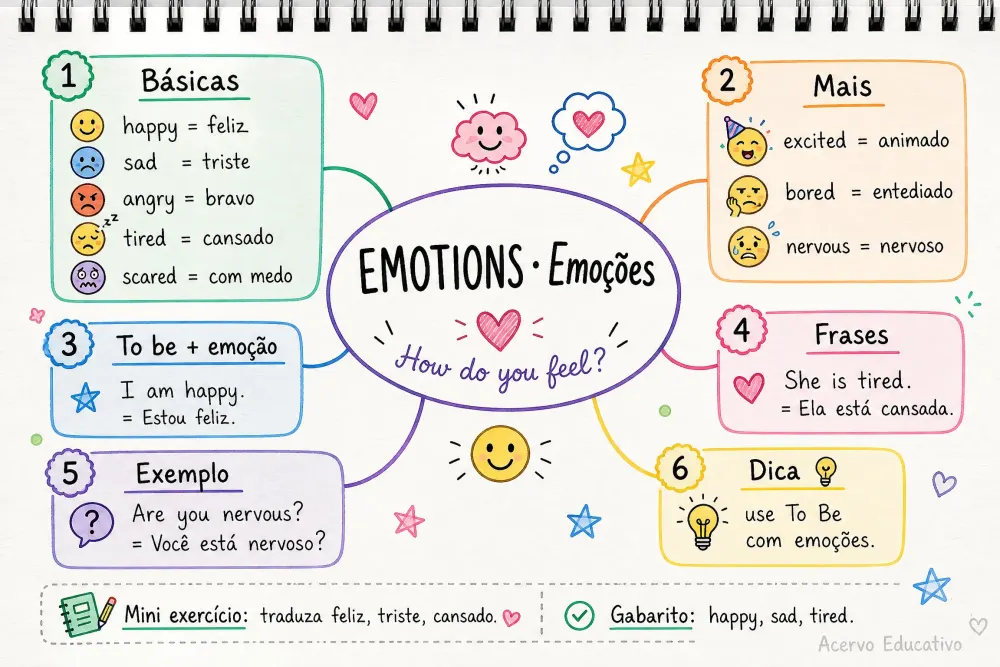 EMOTIONS · Emoções
How do you feel?
1
Básicas
happy = feliz
sad = triste
angry = bravo
zzz
tired = cansado
scared = com medo
2
Mais
excited = animado
bored = entediado
nervous = nervoso
3
To be + emoção
I am happy.
= Estou feliz.
4
Frases
She is tired.
= Ela está cansada.
5
Exemplo
?
Are you nervous?
= Você está nervoso?
6
Dica
use To Be
com emoções.
Mini exercício: traduza feliz, triste, cansado.
Gabarito: happy, sad, tired.
Acervo Educativo